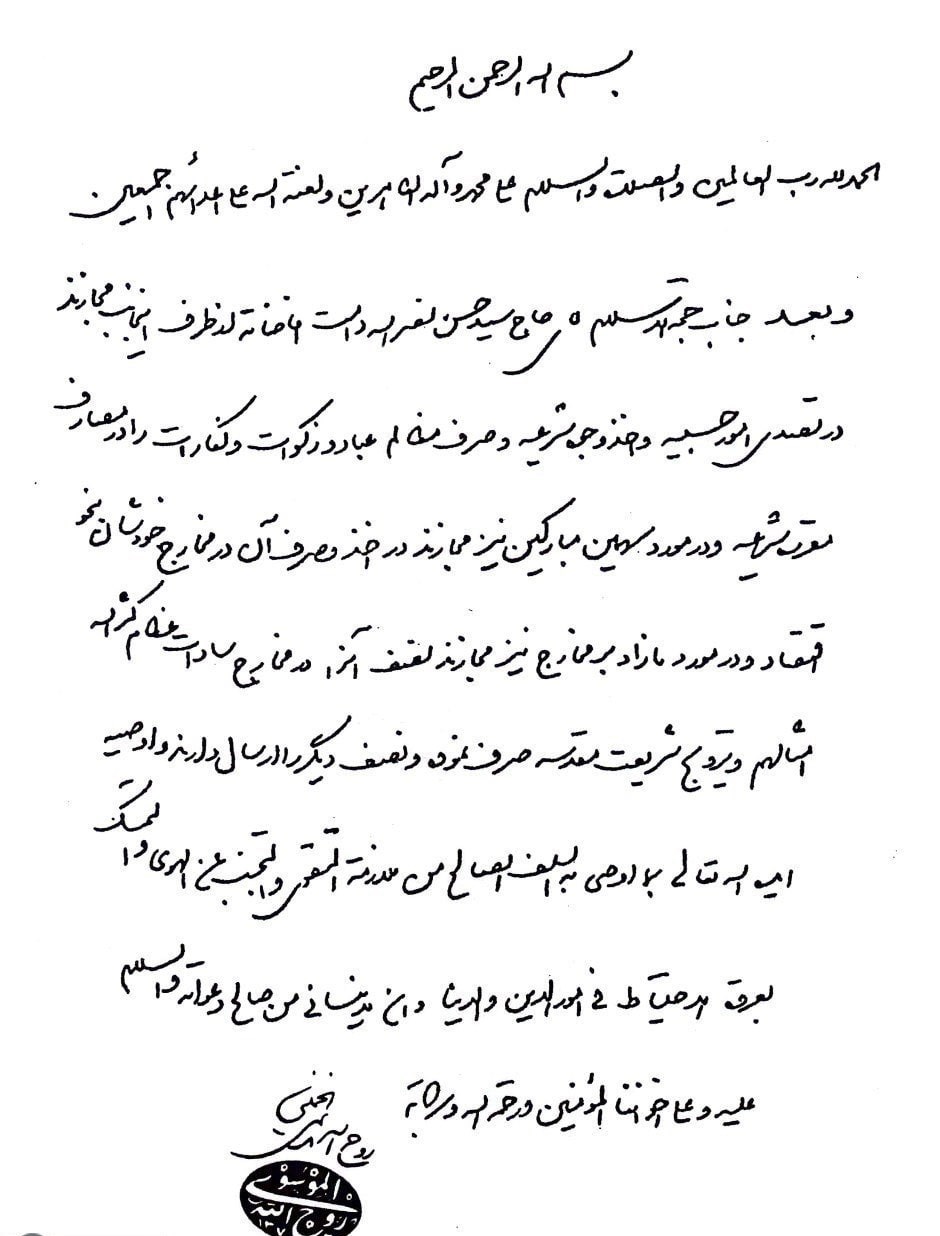 بسم الله الرحمن الرحیم
الحمد لله رب العالمین والصلوة والسلام علی محمد وآله الطاهرین ولعنة الله علی اعدائهم اجمعین
و بعد جناب حجة الاسلام آقای حاج سید حسن نصرالله دامت افاضاته از طرف اینجانب مجازند
در تصدی امور حسبیه و اخذ وجوه شرعیه و صرف مظالم عباد و زکوات و کفارات را در مصارف
مقرره شرعیه و در مورد سهمین مبارکین نیز مجازند در اخذ و صرف آن در مخارج خودشان بنحو
اقتصاد و در مورد مازاد بر مخارج نیز مجازند نصف آنرا در مخارج سادات عظام کثر الله
امثالهم و ترویج شریعت مقدسه صرف نموده و نصف دیگر را ارسال دارند و اوصیه
ایده الله تعالی بما اوصی به السلف الصالح من ملازمة التقوی والتجنب عن الهوی والتمسک
بعروة الاحتیاط فی امور الدین والدنیا وان لاینسانی من صالح دعواته والسلام
علیه وعلی اخواننا المؤمنین ورحمة الله وبرکاته
روح الله الموسوی الخمینی
الموسوی
روح الله